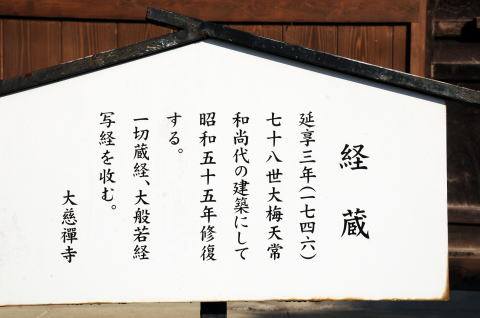 経蔵
延享三年(一七四六)
七十八世大梅天常
和尚代の建築にして
昭和五十五年修復
する。
一切蔵経、大般若経
写経を収む。
大慈禪寺